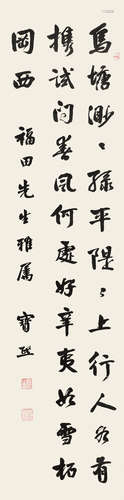 烏塘渺渺綠平隄隄上行人各有
携試問春風何處好辛夷如雪柘
岡西
福田先生雅屬 寶熙